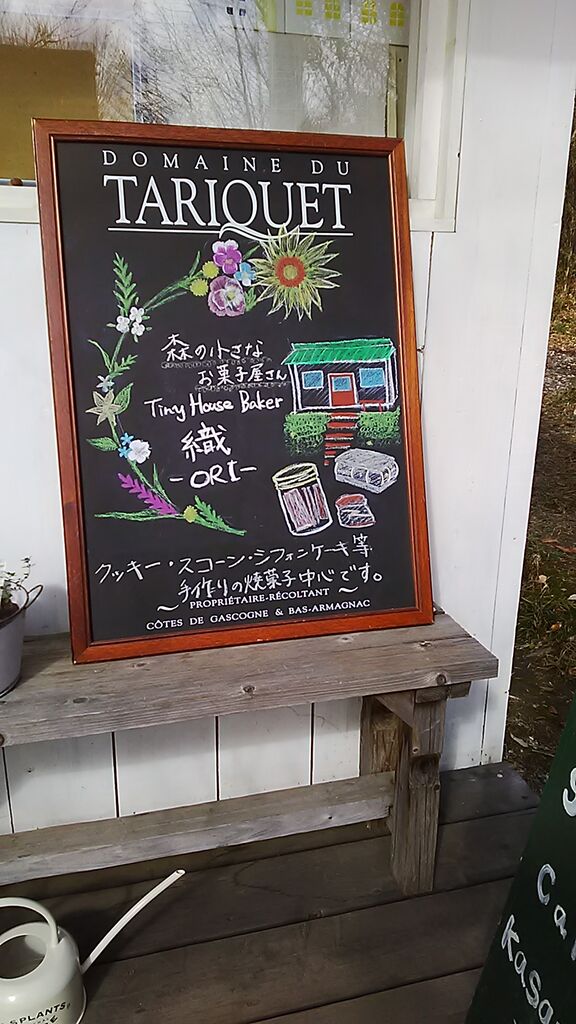 DOMAINE DU
TARIQUET
森の小さな
お菓子屋さん
Tiny House Baker
織
-ORI-
クッキー・スコーン・シフォンケーキ等
手作りの焼菓子中心です。
PROPRIÉTAIRE-RÉCOLTANT
CÔTES DE GASCOGNE & BAS-ARMAGNAC
PLANTS